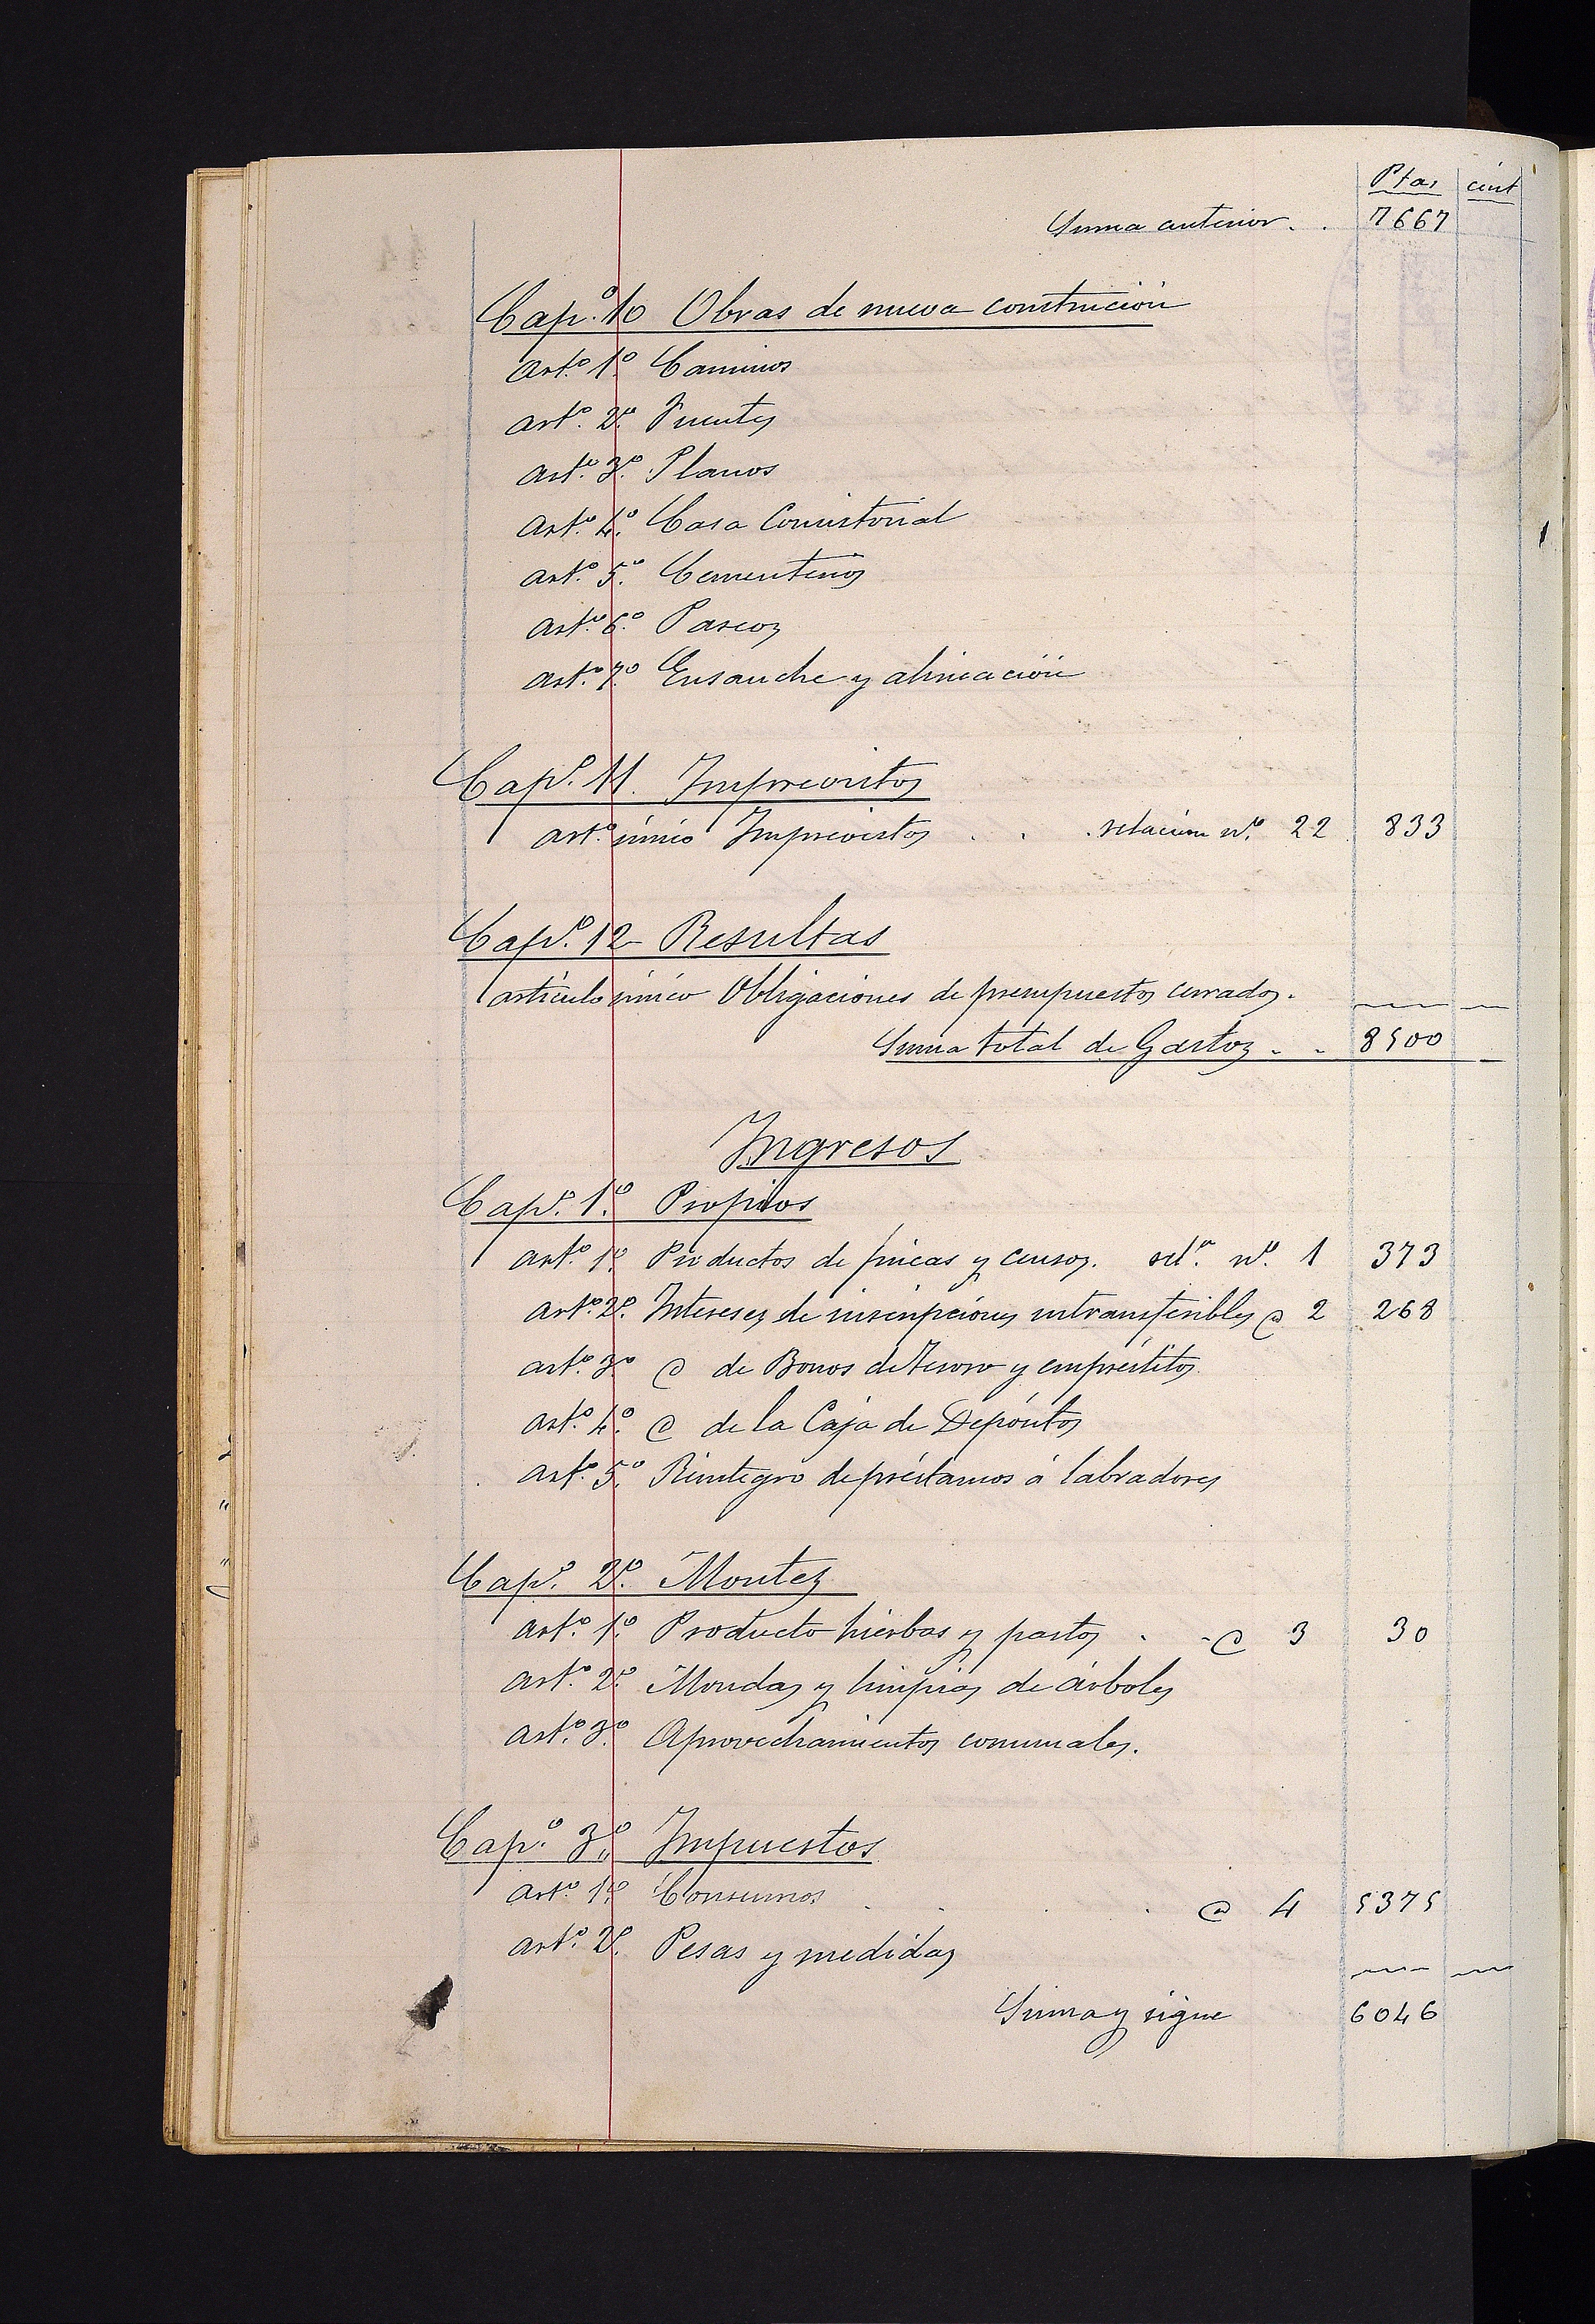 Ptas cint
Suma anterior . . 7667
Cap.º 10 Obras de nueva construcion
Art.º 1.º Caminos
art.º 2.º Fuentes
art.º 3.º Planos
art.º 4.º Casa Consistorial
art.º 5.º Cementerios
art.º 6.º Paseos
art.º 7.º Ensanche y alineación
Cap.º 11. Imprevistos
art.º único Imprevistos . . . relación n.º 22 833
Cap.º 12 Resultas
artículo único Obligaciones de presupuestos cerrados.
Suma total de Gastos . . 8500
Ingresos
Cap.º 1.º Propios
art.º 1.º Productos de fincas y censos. rel.n n.º 1 373
art.º 2.º Intereses de inscripciones intransferibles @ 2 268
art.º 3.º @ de Bonos del Tesoro y empréstitos
art.º 4.º @ de la Caja de Depósitos
art.º 5.º Reintegro de préstamos á labradores
Cap.º 2.º Montes
art.º 1.º Producto hierbas y pastos . . @ 3 30
art.º 2.º Mondas y limpias de árboles
art.º 3.º Aprovechamientos comunales.
Cap.º 3.º Impuestos
art.º 1.º Consumos . . . . @ 4 5375
art.º 2.º Pesas y medidas
Suma y sigue 6046